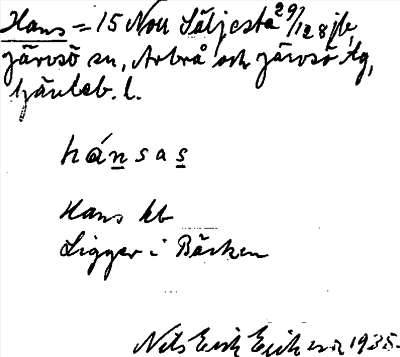 Hans = 15 Norr Säljesta 29/12 8 jb,
Järvsö sn, Arbrå och Järvsö tg,
Gävleb. l.
hánsas
Hans kb
Ligger i Bäcken
Nils Erik Eriksson 1935.